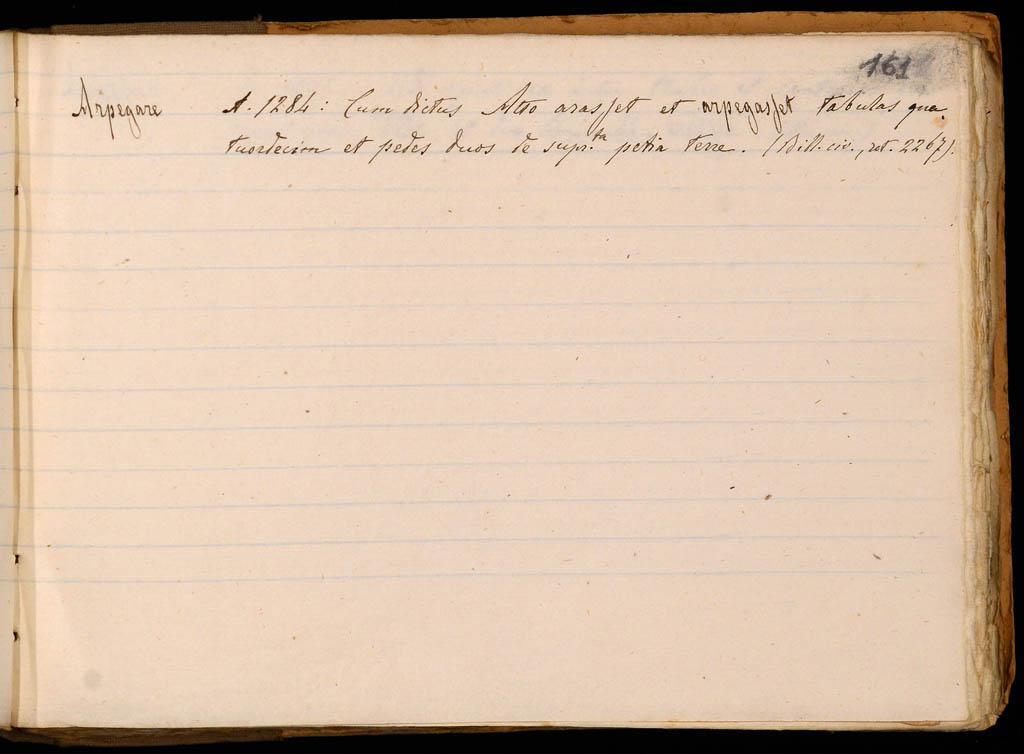 161
Arpegare A. 1284: Cum dictus Atto arasset et arpegasset tabulas qua-
tuordecim et pedes duos de supr.ta petia terre. (Bill. civ., rot. 2267).